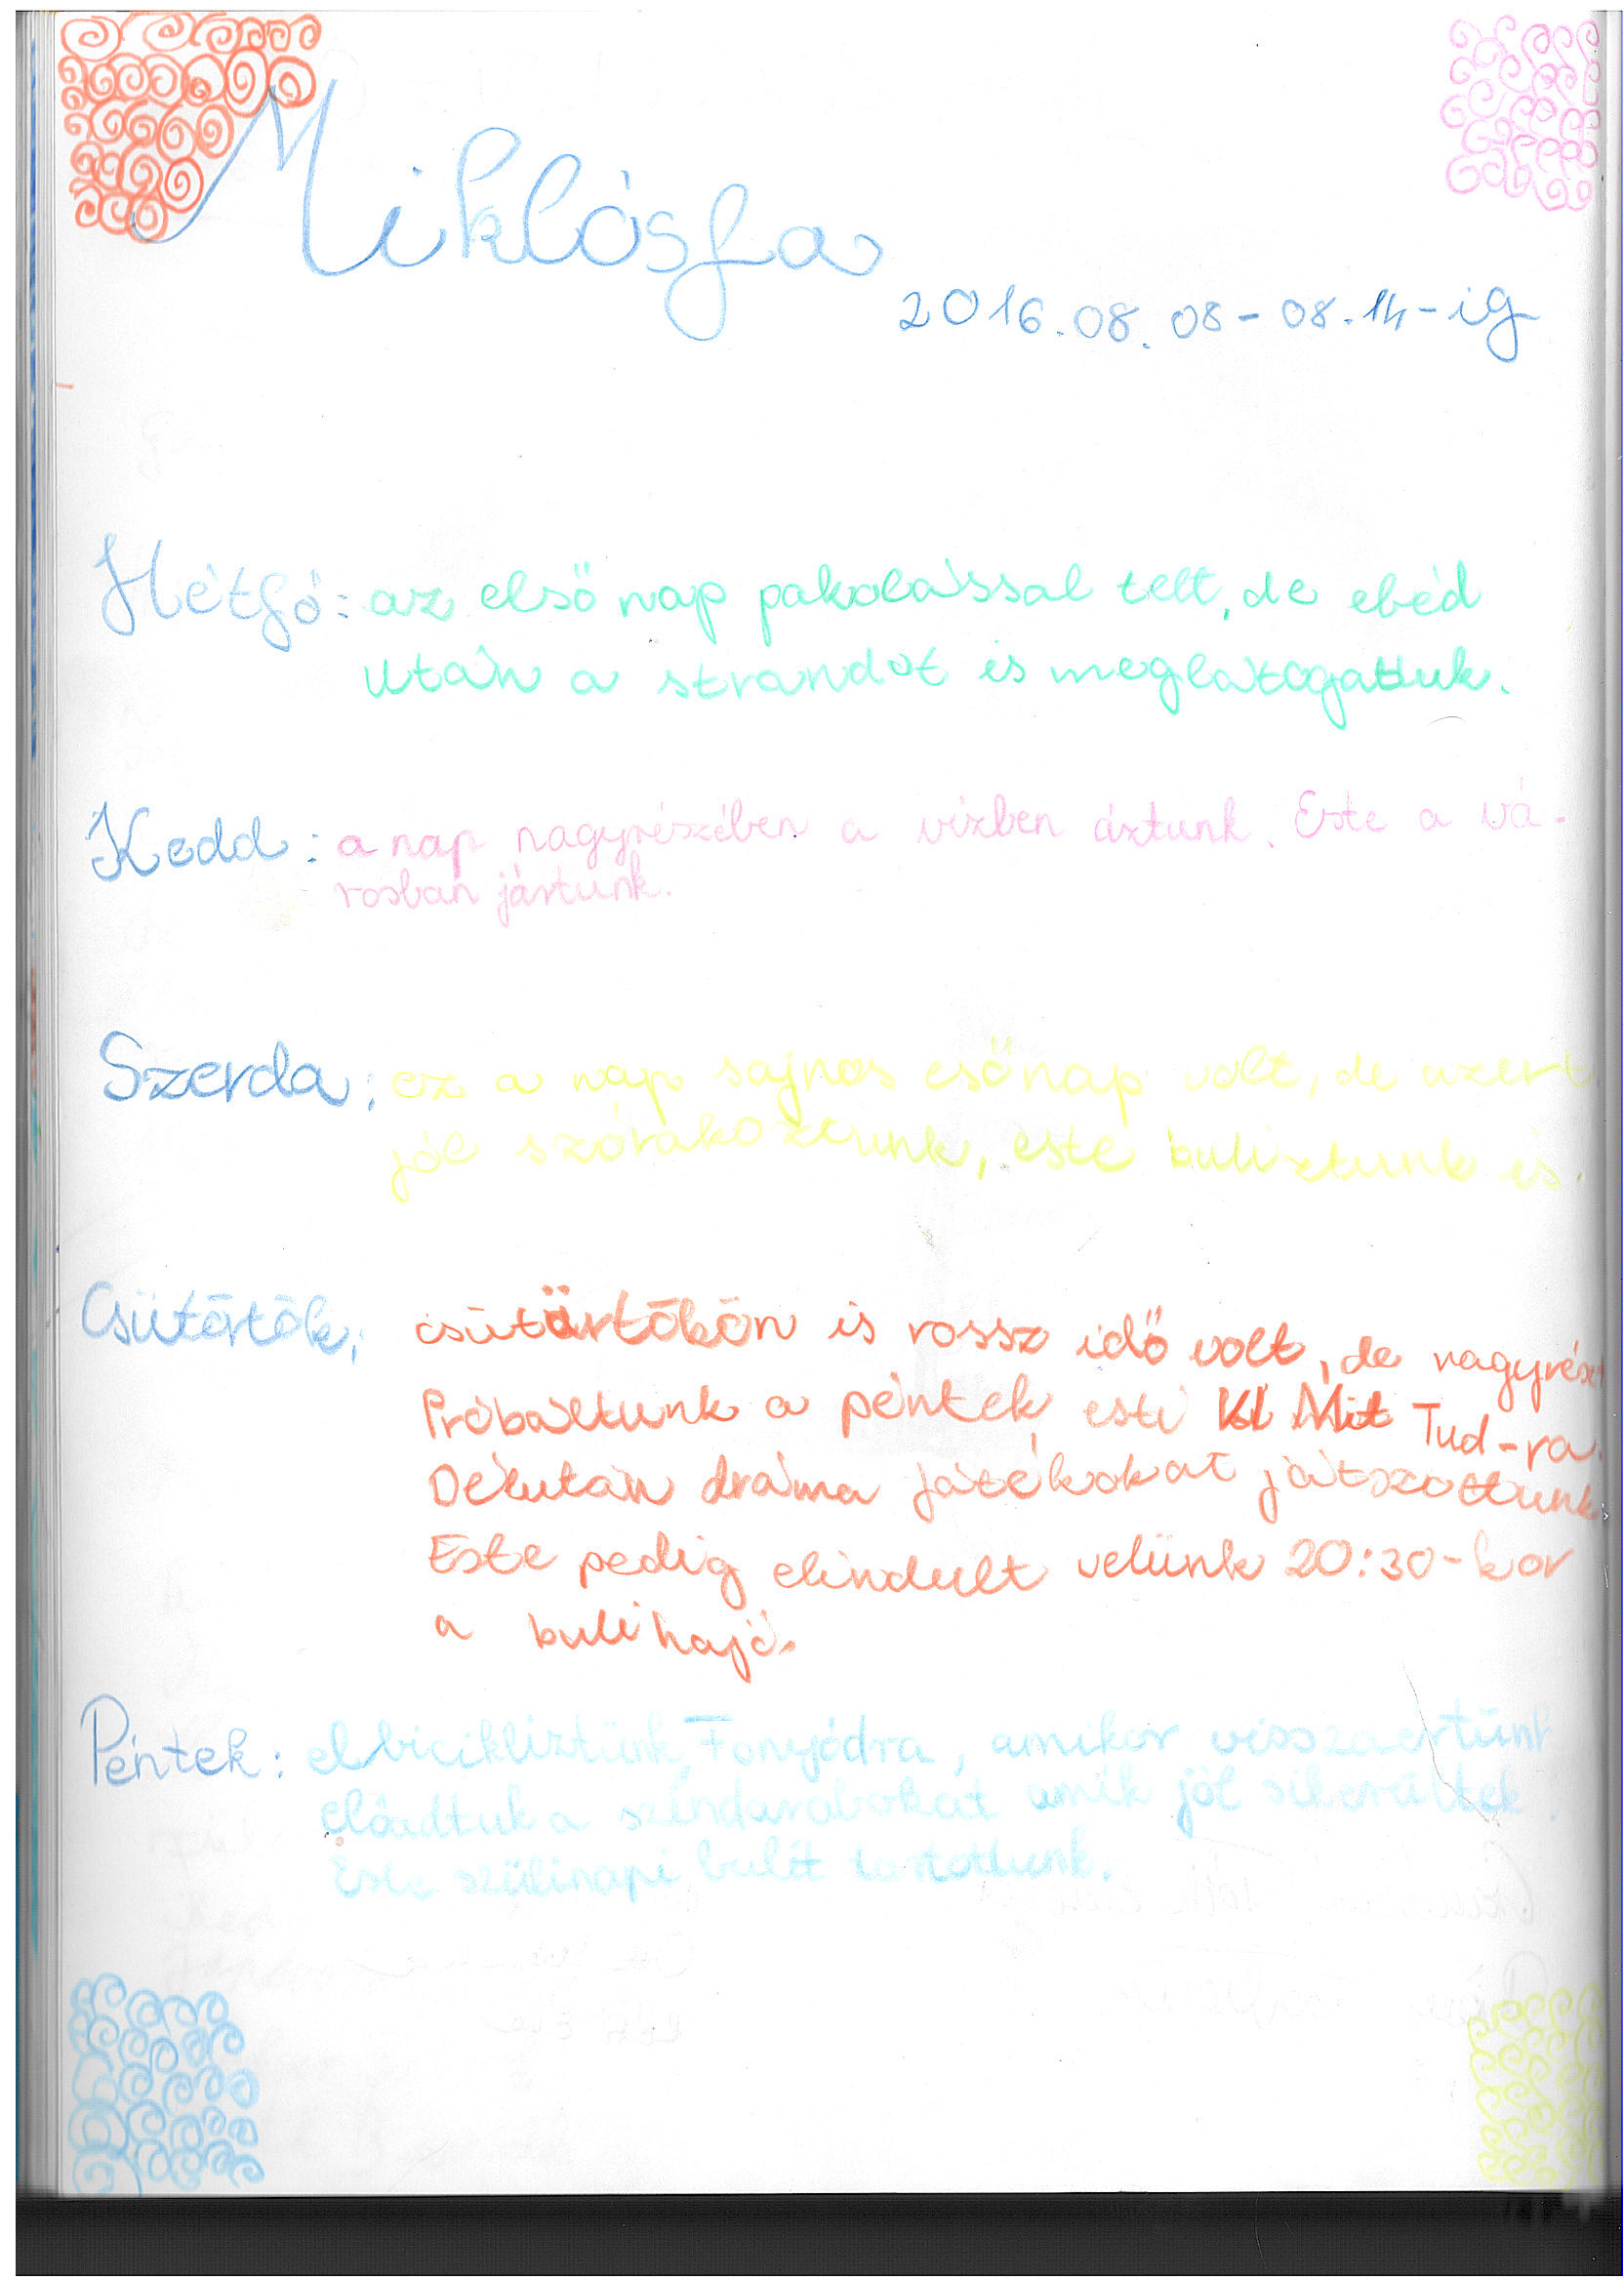 Miklósfa
2016.08.08-08.14-ig
Hétfő: az első nap pakolással telt, de ebéd
után a strandot is meglátogattuk.
Kedd: a nap nagyrészében a vízben áztunk. Este a vá-
rosban jártunk.
Szerda: ez a nap sajnos esőnap volt, de azért
jól szórakoztunk, este buliztunk is.
Csütörtök: csütörtökön is rossz idő volt, de nagyrészt
Próbáltunk a péntek esti Ki Mit Tud-ra.
Délután dráma játékokat játszottunk
Este pedig elindult velünk 20:30-kor
a bulihajó.
Péntek: elbicikliztünk Fonyódra, amikor visszaértünk
előadtuk a színdarabokat amik jól sikerültek.
Este szülinapi bulit tartottunk.